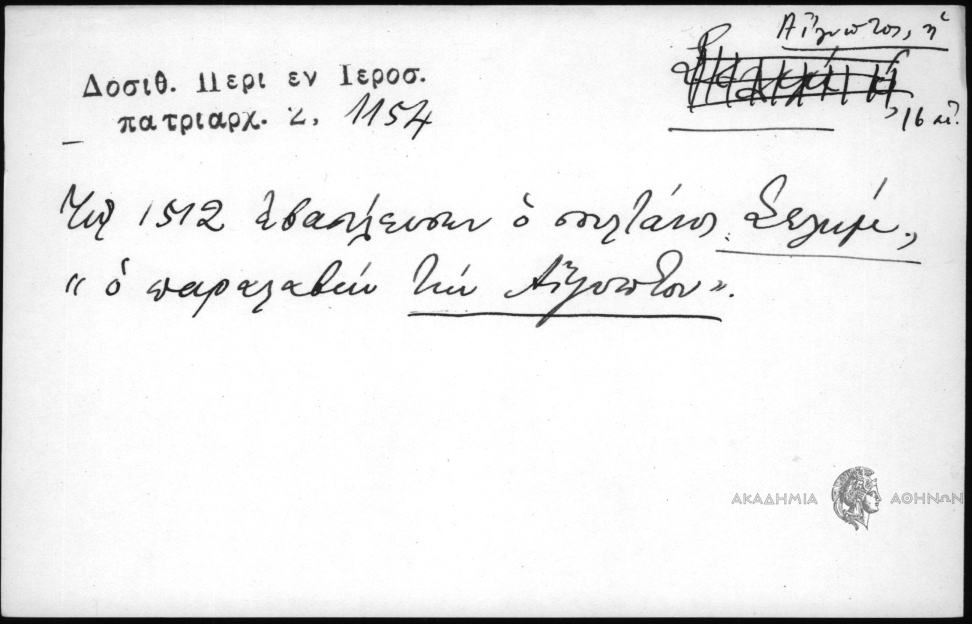 Αἴγυπτος, ἡ
16 αἰ.
Δοσιθ. Περι εν Ιεροσ.
πατριαρχ. 2, 1154
Τῷ 1512 ἐβασίλευσεν ὁ σουλτάνος Σελήμ,
"ὁ παραλαβὼν τὴν Αἴγυπτον".
ΑΚΑΔΗΜΙΑ ΑΘΗΝΩΝ